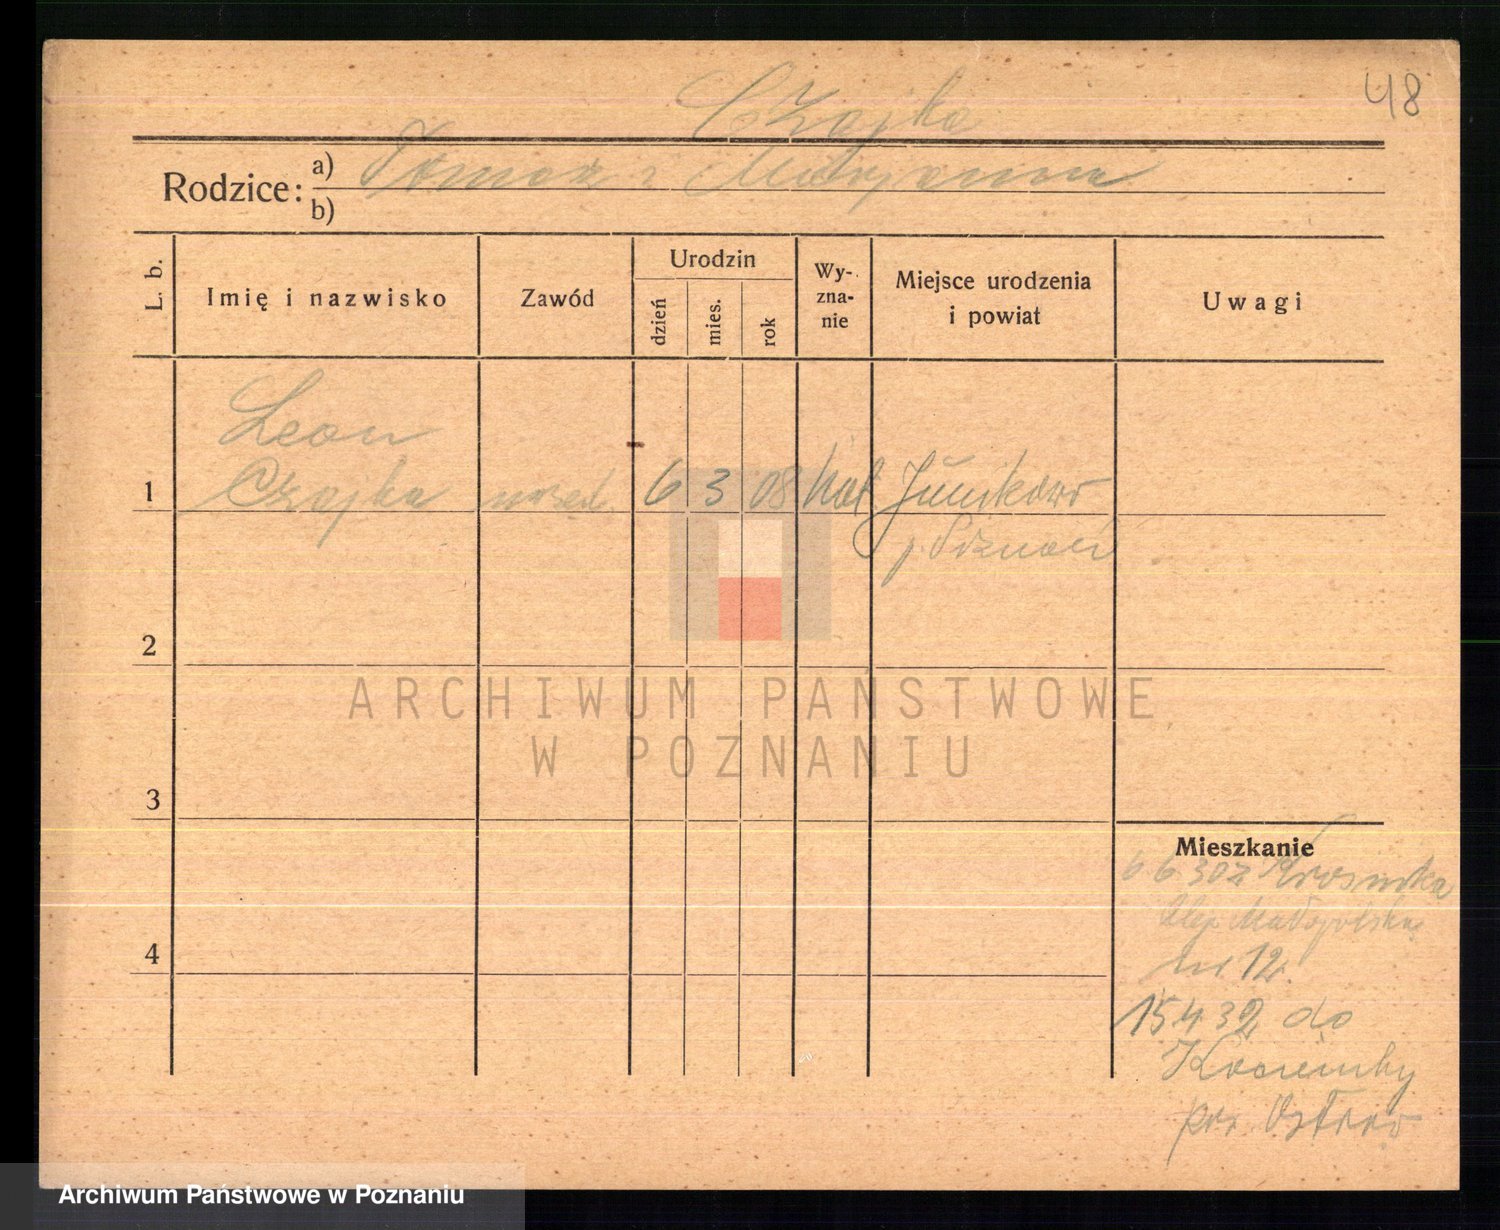 48
Czajka
Rodzice: a) Tomasz i Maryanna
b)
L. b. Imię i nazwisko Zawód Urodzin dzień mies. rok Wy-zna-nie Miejsce urodzenia i powiat Uwagi
Leon
1 Czajka 6 3 08 kat Junikowo
p. Poznań
2
ARCHIWUM PAŃSTWOWE
W POZNANIU
3
Mieszkanie
6 6 30 z
4
nr 12.
15 4 32 do
pow. Ostrów
Archiwum Państwowe w Poznaniu